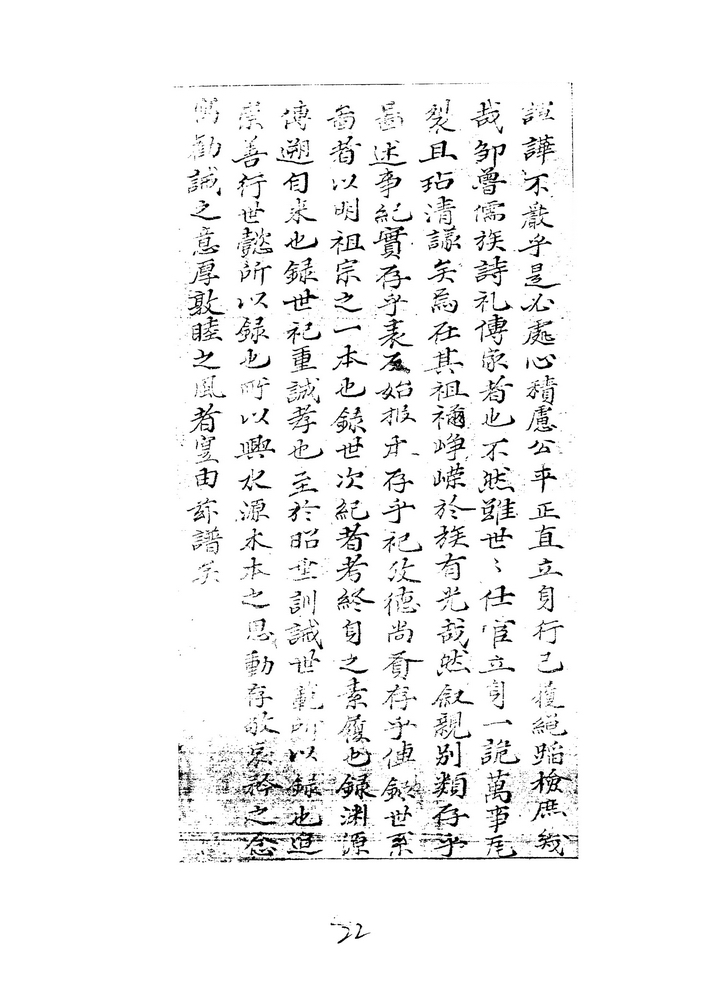 諠譁不嚴乎是必處心積慮公平正直立身行己履繩蹈檢庶幾
哉邹魯儒族詩礼傳家者也不然雖世〻仕宦立身一詭萬事瓦
裂且玷清議矣焉在其祖禰崢嶸於族有光哉然叙親别類存乎
啚述事紀實存乎表反始报本存乎祀攷德尚賢存乎傳錄世系
啚者以明祖宗之一本也録世次紀者考終身之素履也録渊源
傳遡自来也録世祀重誠孝也至於昭世訓誡世範所以録也追
崇善行世懿所以録也所以興水源木本之思動存敬哀矜之念
寓勸誡之意厚敦睦之風者寔由茲譜矣
22